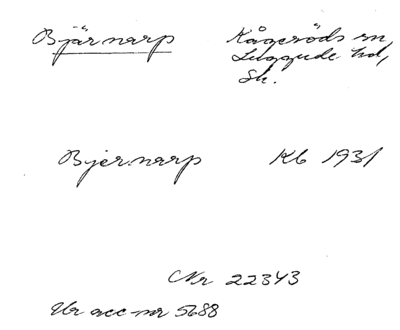 Bjärnarp Kågeröds sn,
Luggude hd,
Sk.
Bjernarp Kb 1931
Nr 22343
Ur acc nr 5688